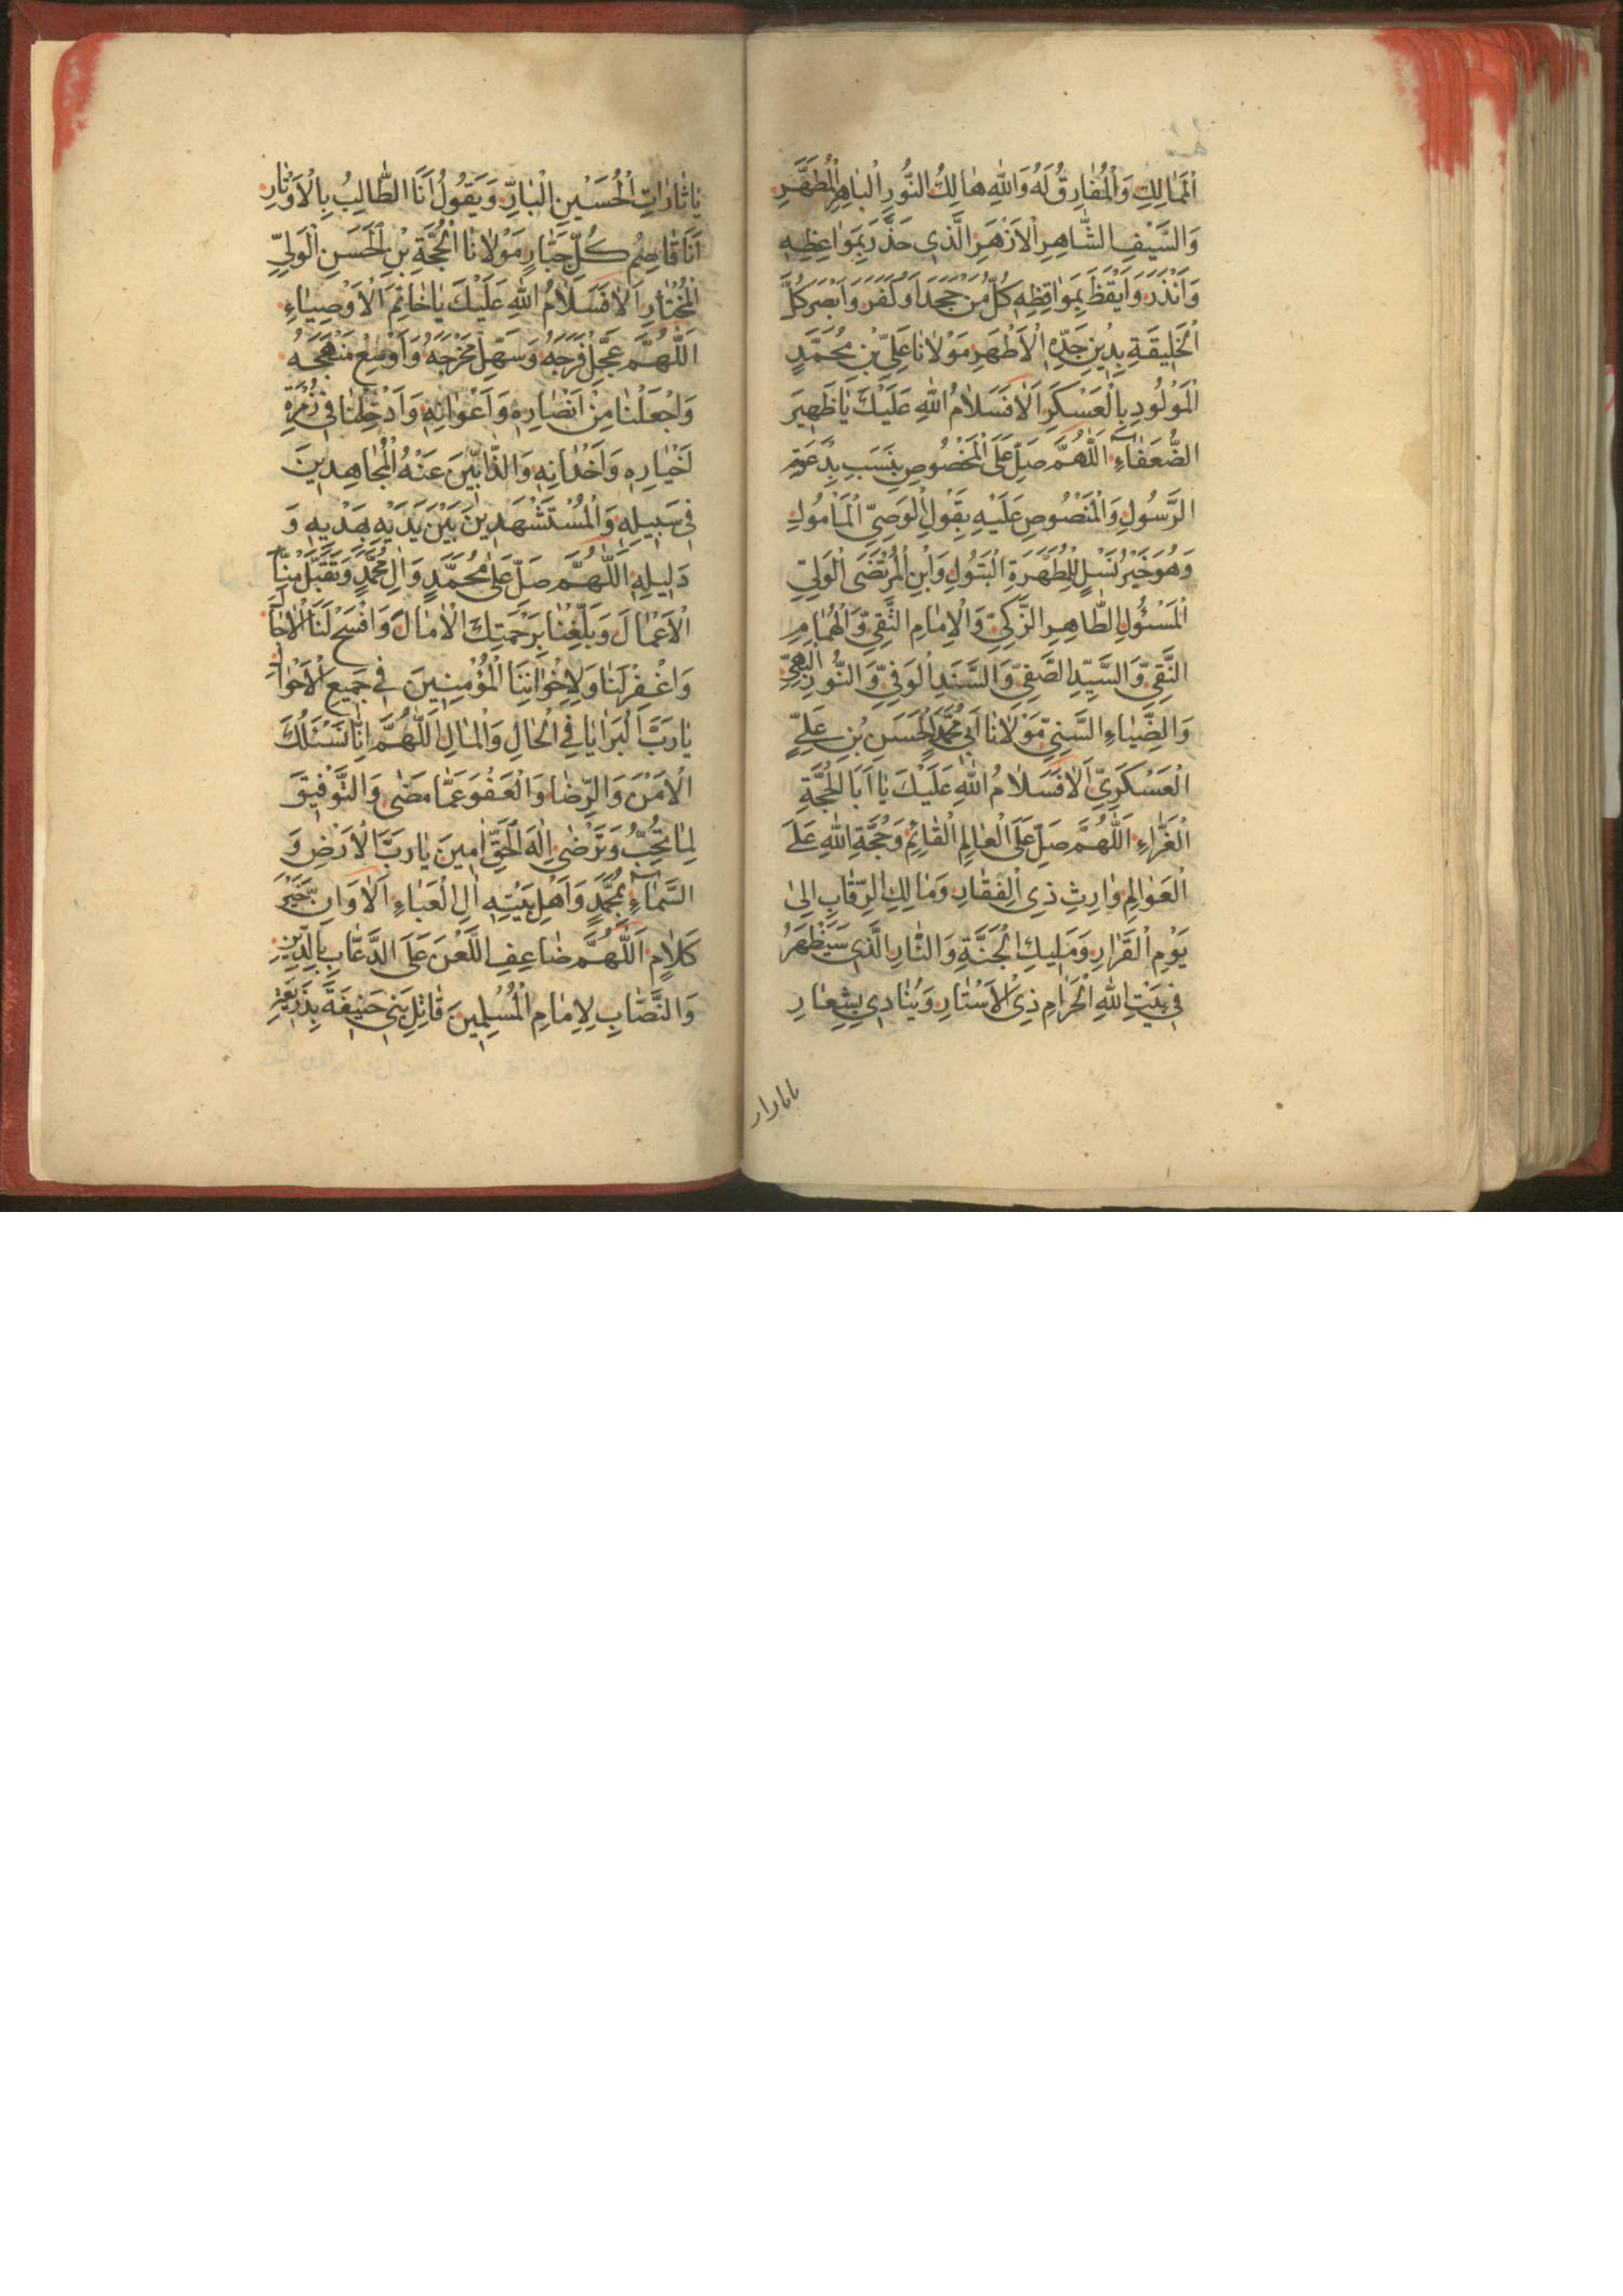 اَلْمَمَالِكِ وَالْمُفَارِقُ لَهُ وَاللهِ هَالِكُ النُّورِ الْبَاهِرِ الْمُطَهَّرِ
وَالسَّيْفِ الشَّاهِرِ الْاَزْهَرِ الَّذِي حَذَّرَ بِمَوَاعِظِهِ
وَاَنْذَرَ وَاَيْقَظَ بِمَوَاقِظِهِ كُلَّ مَنْ جَحَدَ اَوْ كَفَرَ وَاَبْصَرَ كُلَّ
الْخَلِيقَةِ بِدِينِ جَدِّهِ الْاَطْهَرِ مَوْلَانَا عَلِيِّ بْنِ مُحَمَّدٍ
الْمَوْلُودِ بِالْعَسْكَرِ اَلَا فَسَلَامُ اللهِ عَلَيْكَ يَا ظَهِيرَ
الضُّعَفَاءِ اَللّٰهُمَّ صَلِّ عَلَى الْمَخْصُوصِ بِنَسَبِ بِدَعْوَةِ
الرَّسُولِ وَالْمَنْصُوصِ عَلَيْهِ بِقَوْلِ الْوَصِيِّ الْمَأْمُولِ
وَهُوَ خَيْرُ نَسْلٍ لِلْمُطَهَّرَةِ الْبَتُولِ وَابْنِ الْمُرْتَضَى الْوَلِيِّ
الْمَسْئُولِ الطَّاهِرِ الزَّكِيِّ وَالْاِمَامِ التَّقِيِّ وَالْهُمَامِ
النَّقِيِّ وَالسَّيِّدِ الصَّفِيِّ وَالسَّنَدِ الْوَفِيِّ وَالنُّورِ الْبَهِيِّ
وَالضِّيَاءِ السَّنِيِّ مَوْلَانَا اَبِي مُحَمَّدٍ الْحَسَنِ بْنِ عَلِيٍّ
الْعَسْكَرِيِّ اَلَا فَسَلَامُ اللهِ عَلَيْكَ يَا اَبَا الْحُجَّةِ
الْغَرَّاءِ اَللّٰهُمَّ صَلِّ عَلَى الْعَالِمِ الْقَائِمِ وَحُجَّةِ اللهِ عَلَى
الْعَوَالِمِ وَارِثِ ذِي الْفِقَارِ وَمَالِكِ الرِّقَابِ اِلَى
يَوْمِ الْقَرَارِ وَمَلِيكِ الْجَنَّةِ وَالنَّارِ الَّذِي سَيَظْهَرُ
فِي بَيْتِ اللهِ الْحَرَامِ ذِي الْاَسْتَارِ وَيُنَادِي بِشِعَارِ
يَا ثَارَاتِ الْحُسَيْنِ الْبَارِّ وَيَقُولُ اَنَا الطَّالِبُ بِالْاَوْتَارِ
اَنَا قَاصِمُ كُلِّ جَبَّارٍ مَوْلَانَا الْحُجَّةِ بْنِ الْحَسَنِ الْوَلِيِّ
الْمُخْتَارِ اَلَا فَسَلَامُ اللهِ عَلَيْكَ يَا خَاتِمَ الْاَوْصِيَاءِ
اَللّٰهُمَّ عَجِّلْ فَرَجَهُ وَسَهِّلْ مَخْرَجَهُ وَاَوْسِعْ مَنْهَجَهُ
وَاجْعَلْنَا مِنْ اَنْصَارِهِ وَاَعْوَانِهِ وَاَدْخِلْنَا فِي زُمْرَةِ
اَخْيَارِهِ وَاَخْدَانِهِ وَالذَّابِّينَ عَنْهُ الْمُجَاهِدِينَ
فِي سَبِيلِهِ وَالْمُسْتَشْهَدِينَ بَيْنَ يَدَيْهِ بِهَدْيِهِ وَ
دَلِيلِهِ اَللّٰهُمَّ صَلِّ عَلَى مُحَمَّدٍ وَاٰلِ مُحَمَّدٍ وَتَقَبَّلْ مِنَّا
الْاَعْمَالَ وَبَلِّغْنَا بِرَحْمَتِكَ الْاٰمَالَ وَافْسَحْ لَنَا الْاٰجَالَ
وَاغْفِرْ لَنَا وَلِاِخْوَانِنَا الْمُؤْمِنِينَ فِي جَمِيعِ الْاَحْوَالِ
يَا رَبَّ الْبَرَايَا فِي الْحَالِ وَالْمَالِ اَللّٰهُمَّ اِنَّا نَسْئَلُكَ
الْاَمْنَ وَالرِّضَا وَالْعَفْوَ عَمَّا مَضَى وَالتَّوْفِيقَ
لِمَا تُحِبُّ وَتَرْضَى اِلٰهَ الْحَقِّ اٰمِينَ يَا رَبَّ الْاَرْضِ وَ
السَّمَاءِ بِمُحَمَّدٍ وَاَهْلِ بَيْتِهِ اٰلِ الْعَبَاءِ اَلَا وَاِنَّ خَيْرَ
كَلَامٍ اَللّٰهُمَّ ضَاعِفِ اللَّعْنَ عَلَى الدَّعَّابِ بِالدِّينِ
وَالنَّصَّابِ لِاِمَامِ الْمُسْلِمِينَ قَاتِلِ بَنِي حَنِيفَةَ